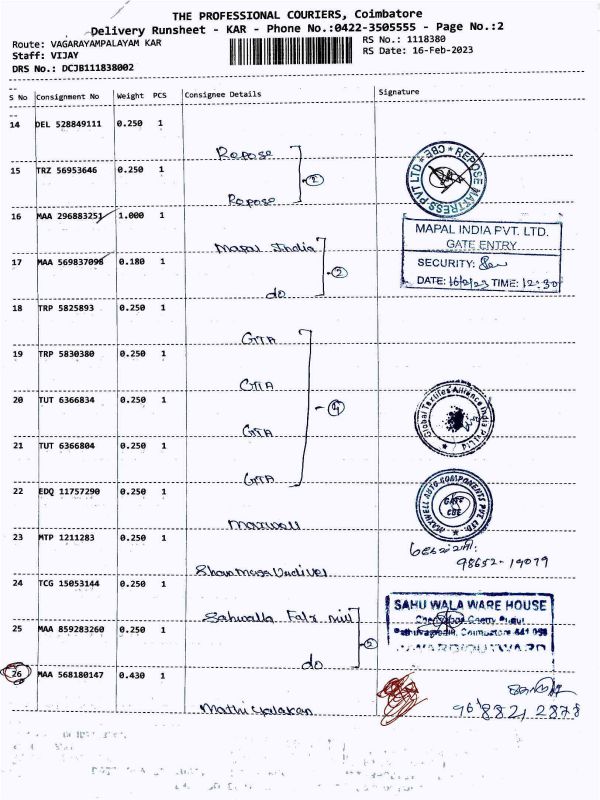 THE PROFESSIONAL COURIERS, Coimbatore
Delivery Runsheet - KAR - Phone No.:0422-3505555 - Page No.:2
Route: VAGARAYAMPALAYAM KAR
RS No.: 1118380
Staff: VIJAY
RS Date: 16-Feb-2023
DRS No.: DCJB111838002
S No Consignment No Weight PCS Consignee Details Signature
14 DEL 528849111 0.250 1
Repose
REPOSE MATTRESS PVT LTD * CBE *
15 TRZ 56953646 0.250 1
2
Repose
16 MAA 296883251 1.000 1
MAPAL INDIA PVT. LTD.
GATE ENTRY
Mapal India
17 MAA 569837098 0.180 1
SECURITY:
2
DATE: 16/2/23 TIME: 12:30
do
18 TRP 5825893 0.250 1
GTA
19 TRP 5830380 0.250 1
GTA
20 TUT 6366834 0.250 1
4
Global Textiles Alliance India Pvt Ltd
GTA
21 TUT 6366804 0.250 1
GTA
22 EDQ 11757290 0.250 1
MAXWELL AUTO COMPONENTS PVT. LTD.
GATE
CBE
Maxwell
23 MTP 1211283 0.250 1
98652-19079
24 TCG 15053144 0.250 1
SAHU WALA WARE HOUSE
Sahwalla
25 MAA 859283260 0.250 1
Coimbatore
5
do
26 MAA 568180147 0.430 1